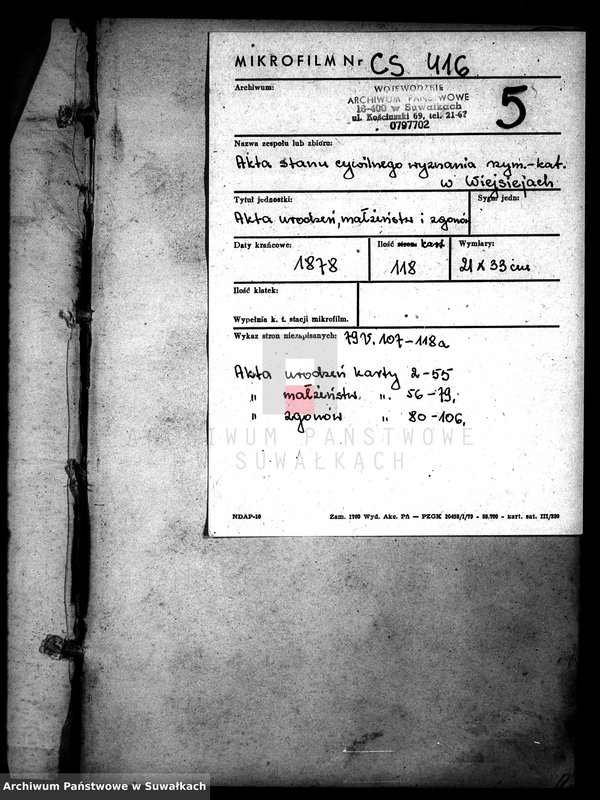 MIKROFILM Nr CS 416
Archiwum:
WOJEWÓDZKIE
ARCHIWUM PAŃSTWOWE
16-400 w Suwałkach
ul. Kościuszki 69, tel. 21-67
0797702
5
Nazwa zespołu lub zbioru:
Akta stanu cywilnego wyznania rzym.-kat.
w Wiejsiejach
Tytuł jednostki:
Sygn. jedn:
Akta urodzeń, małżeństw i zgonów
Daty krańcowe:
Ilość stron kart
Wymiary:
1878
118
21 x 33 cm
Ilość klatek:
Wypełnia k. t. stacji mikrofilm.
Wykaz stron niezapisanych: 79v. 107-118a
Akta urodzeń karty 2-55
" małżeństw " 56-79,
" zgonów " 80-106,
ARCHIWUM PAŃSTWOWE
W SUWAŁKACH
NDAP-10
Zam. 1760 Wyd. Akc. Pń — PZGK 20458/I/73 - 88.700 - kart. sat. III/220
Archiwum Państwowe w Suwałkach